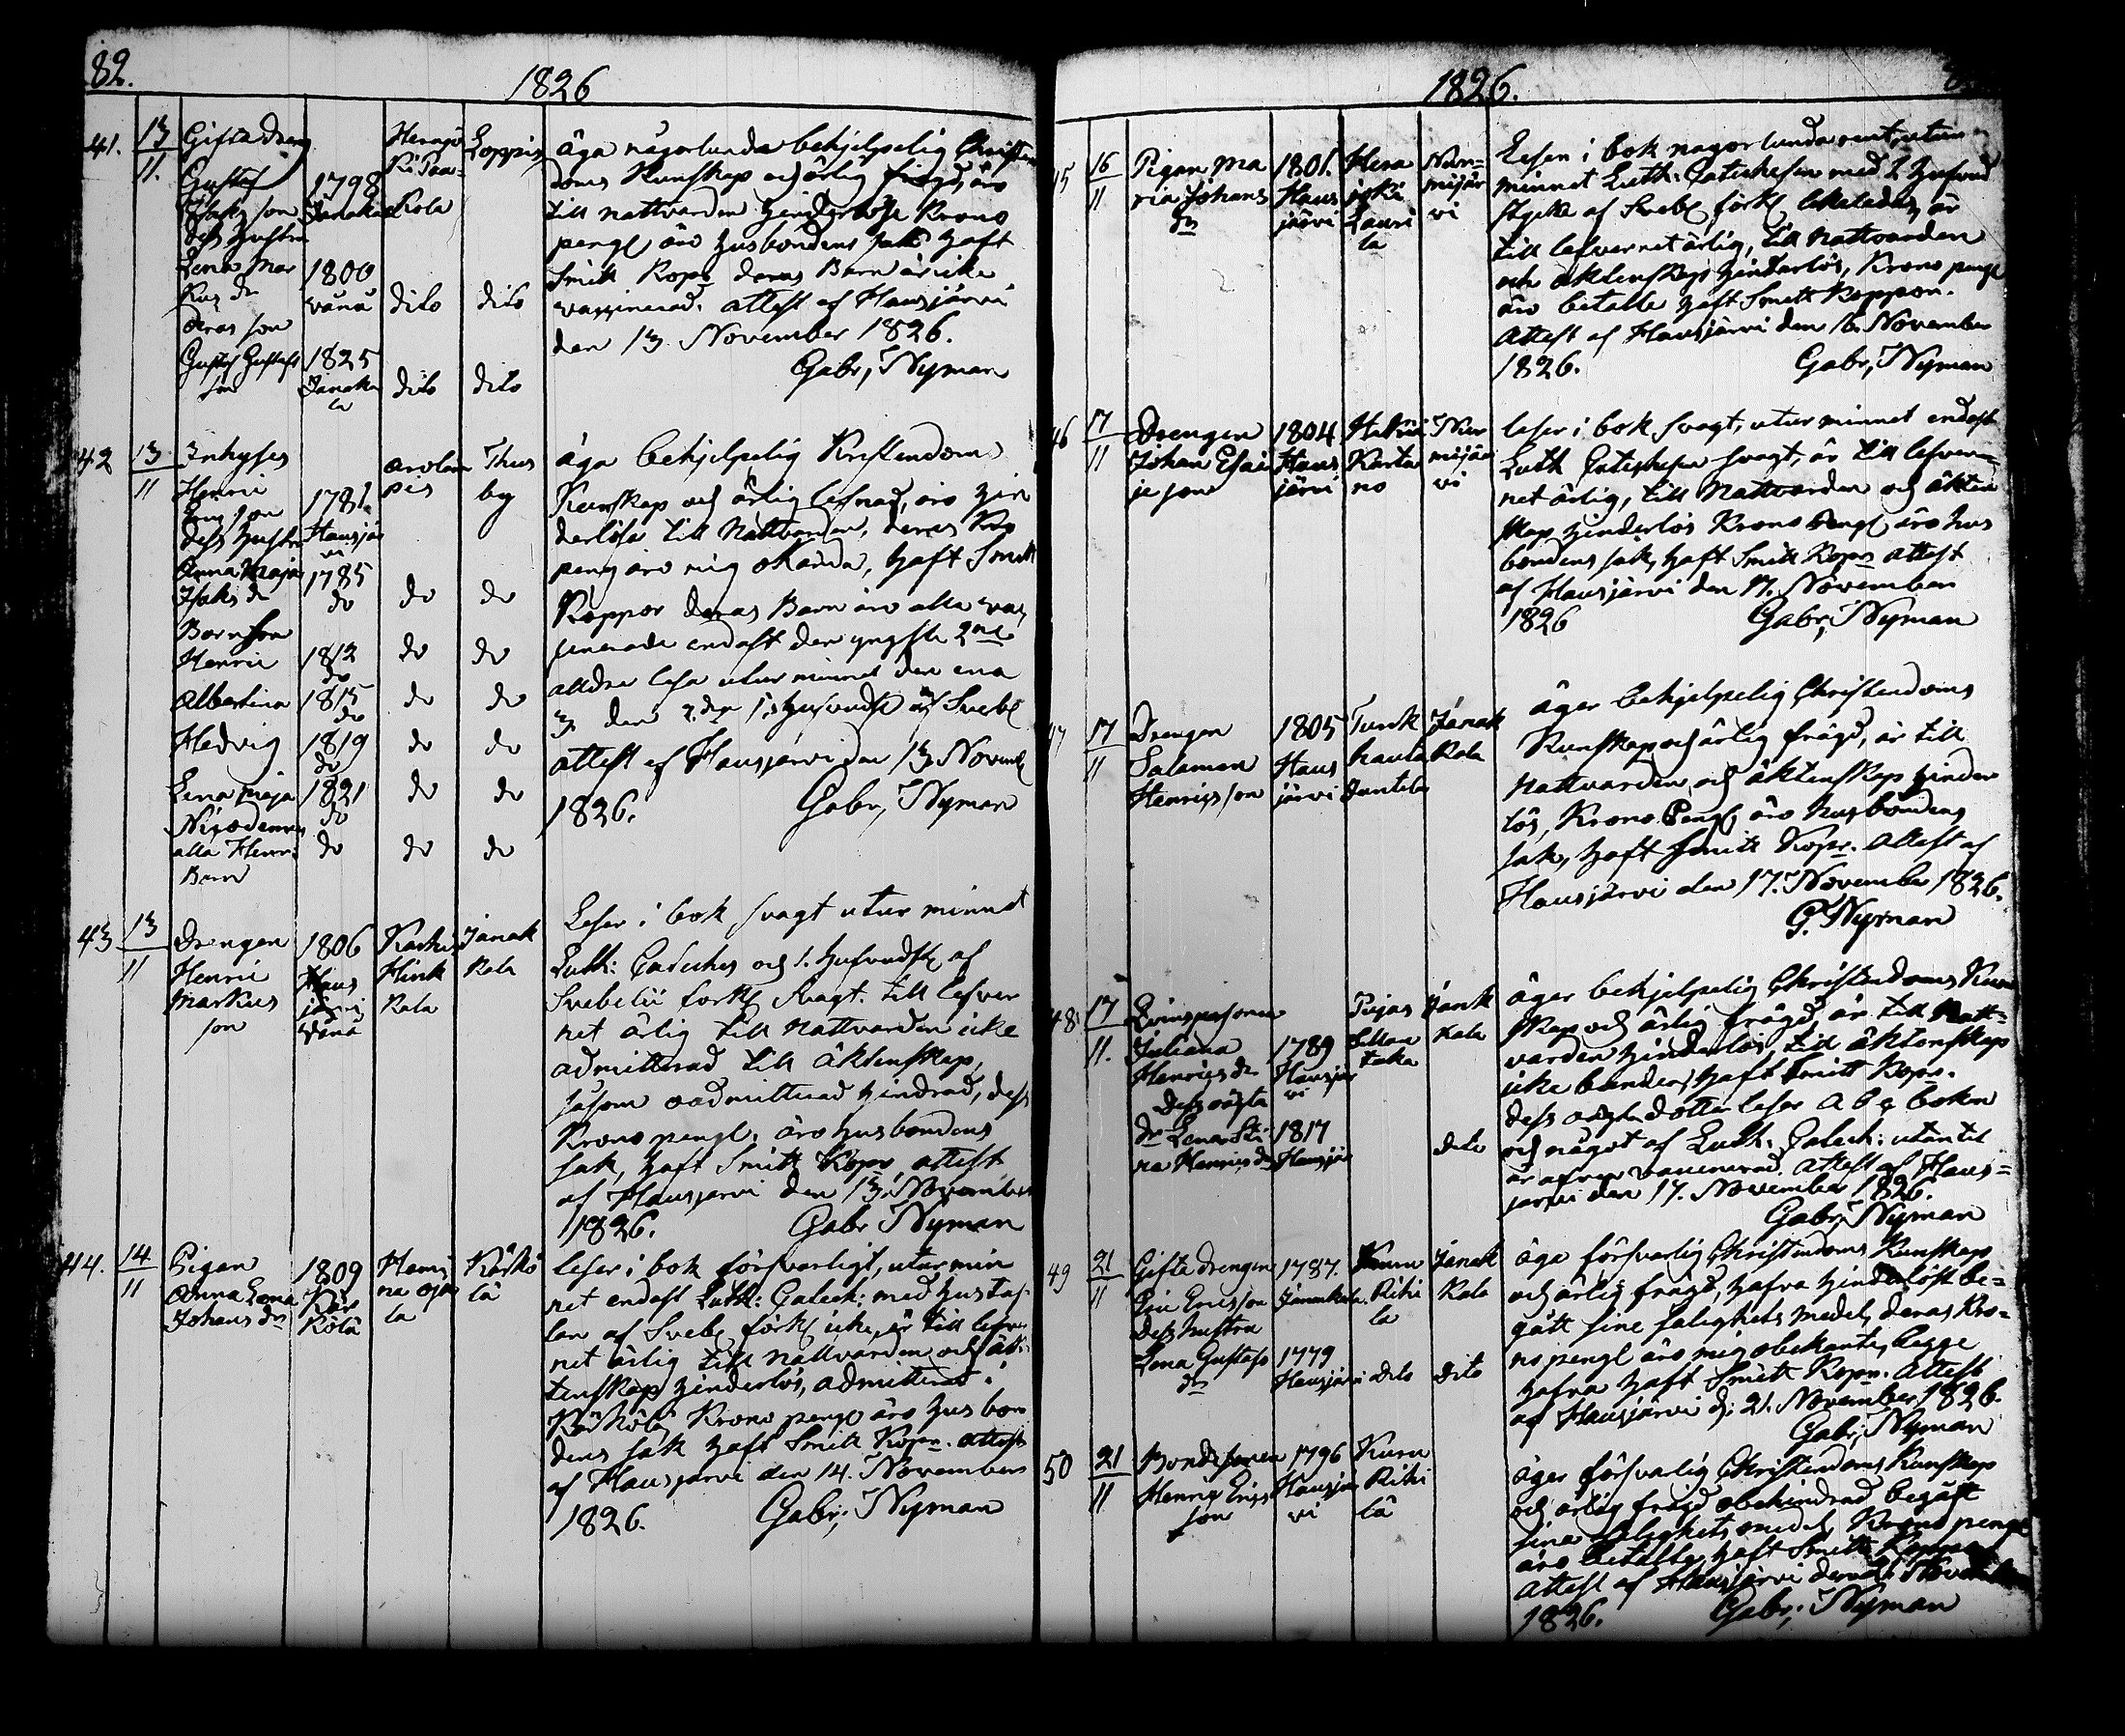 82.
1826
41. 13/11. Gifta Dreng
Gustaf
Isaks son
dess hustru
Lena Mar
kus dr
deras son
Gustaf Gustafs
son
1798
Janakala
1800
vånå
1825
Janaka
la
Herajo
ki Paa-
kola
dito
dito
Loppis
dito
dito
äga någorlunda behjelpelig Christen
doms Kunskap och ärlig frägd, äro
till nattvarden hinderlöse Krono
pengl äro husbondens sak haft
Smitt Kopp deras Barn är icke
vaxinerad. attest af Hausjärvi
den 13 November 1826.
Gabr, Nyman
42 13/11 Inhyses
Henric
son
dess hustru
Anna Maja
Isaks dr
Barn son
Henric
Albertina
Hedvig
Lena Maja
Nicodemus
alla Henrics
Barn
1781
Hausjär
vi
1785
do
1812
do
1815
do
1819
do
1821
do
do
arolam
pis
do
do
do
do
do
do
Thus
by
do
do
do
do
do
do
äga behjelpelig Kristendoms
Kunskap och ärlig lefnad, äro hin
derlösa till Nattvarden, deras Kro
peng äro mig okända, haft Smitt
Koppor deras Barn äro alla vac
sinerade endast den yngsta
alldra lesa utur minnet den ena
3 den 2dra 1. hufvudst af Svebl
attest af Hausjarvi den 13 Novembr
1826. Gabr, Nyman
43 13/11 Drengen
Henric
Markus
son
1806
Haus
järvi
vånå
Karhi
Hink
kala
Janak
kala
Leser i bok svagt utur minnet
Luth: Catechis och 1. hufvudst af
Svebelii forkl svagt. till lefver
net ärlig till Nattvarden icke
admitterad till äktenskap,
såsom oadmitterad hindrad, dess
Kronopengl. äro husbondens
sak, haft Smitt Kopr, attest
af Hausjarvi den 13 November
1826. Gabr Nyman
44. 14/11 Pigan
Anna Lena
Johans dr
1809
Kär
kölä
Hami
na oja
la
Kärkö
lä
leser i bok försvarligt, utur min
net endast Luth: Catech: med hustaf
lan af Svebl förkl icke, är till lefver
net ärlig till Nattvarden och äk-
tenskap hinderlös, admitterad i
Kärkölä, Krono pengl äro husbon
dens sak haft Smitt Kopr. attest
af Hausjarvi den 14. November
1826. Gabr; Nyman
1826.
45 16/11 Pigan Ma
ria Johans
dr
1801.
Haus
järvi
Hera
joki
Lauri
la
Nur-
mijär
vi
Leser i bok nagorlunda rent, utur
minnet Luth: Catechesen med 2 hufvud
stycke af Svebl förkl är
till lefvernet ärlig, till Nattvarden
och äktenskap hinderlös, Krono pengl
äro betalte haft Smitt Koppor.
Attest af Hausjärvi den 16. November
1826. Gabr, Nyman
46 17/11 Drengen
Johan Esaia
je son
1804
Haus
järvi
Hikiä
Karta
no
Nur
mijär
vi
leser i bok svagt, utur minnet endast
Luth Cateshesen svagt, är till lefver-
net ärlig, till Nattvarden och äkten
skap hinderlös Krono Pengl äro hus
bondens sak, haft Smitt Kopr attest
af Hausjärvi den 17. November
1826 Gabr, Nyman
47 17/11 Drengen
Salamon
Henrics son
1805
Haus
järvi
Turk
hauta
Janak
kala
äger behjelpelig Christendoms
Kunskap och ärlig frägd, är till
Nattvarden, och äktenskap hinder
lös, Krono Pengl äro husbondens
sak, haft Smitt Kopr. attest af
Hausjärvi den 17. November 1826.
G. Nyman
48. 17/11. Qvinspersonen
Juliana
Henrics dr
Dess oägta
dr Lena Sti
na Henrics dr
1789
Hausjär
vi
1817
Hausjär
Jank
kala
dito
äger behjelpelig Christendoms Kun
skap och ärlig frägd, är till Natt-
varden hinderlös, till äktenskap
icke bunden, haft Smitt Kopr.
dess oägta dotter leser A b c boken
och något af Luth. Catech: utantil
är afven vaccinerad. Attest af Haus-
jarvi den 17. November 1826.
Gabr, Nyman
49 21/11 Gifta drengen
Eric Ericsson
Dess hustru
Lena Gustafs
dr
1787.
Janakala.
1779
Hausjärvi
Kuru
Rihi
la
dito
Janak
kala
dito
äga försvarlig Christendoms Kunskap
och ärlig frägd, hafva hinderlöst be-
gått sine salighets medel, deras Kro-
nopengl äro mig obekante, begge
hafva haft Smitt Kopr. Attest
af Hausjärvi d: 21. November 1826.
Gabr, Nyman
50 21/11 Bondesonen
Henric Erics
son
1796
Hausjär
vi
Kuru
Rihi
lä
äger försvarlig Christendoms Kunskap
och ärlig frägd obehindrad begått
sine salighets medel, Krono pengl
äro betalte, haft Smitt Koppor
Attest af Hausjärvi den 21 November
1826. Gabr; Nyman